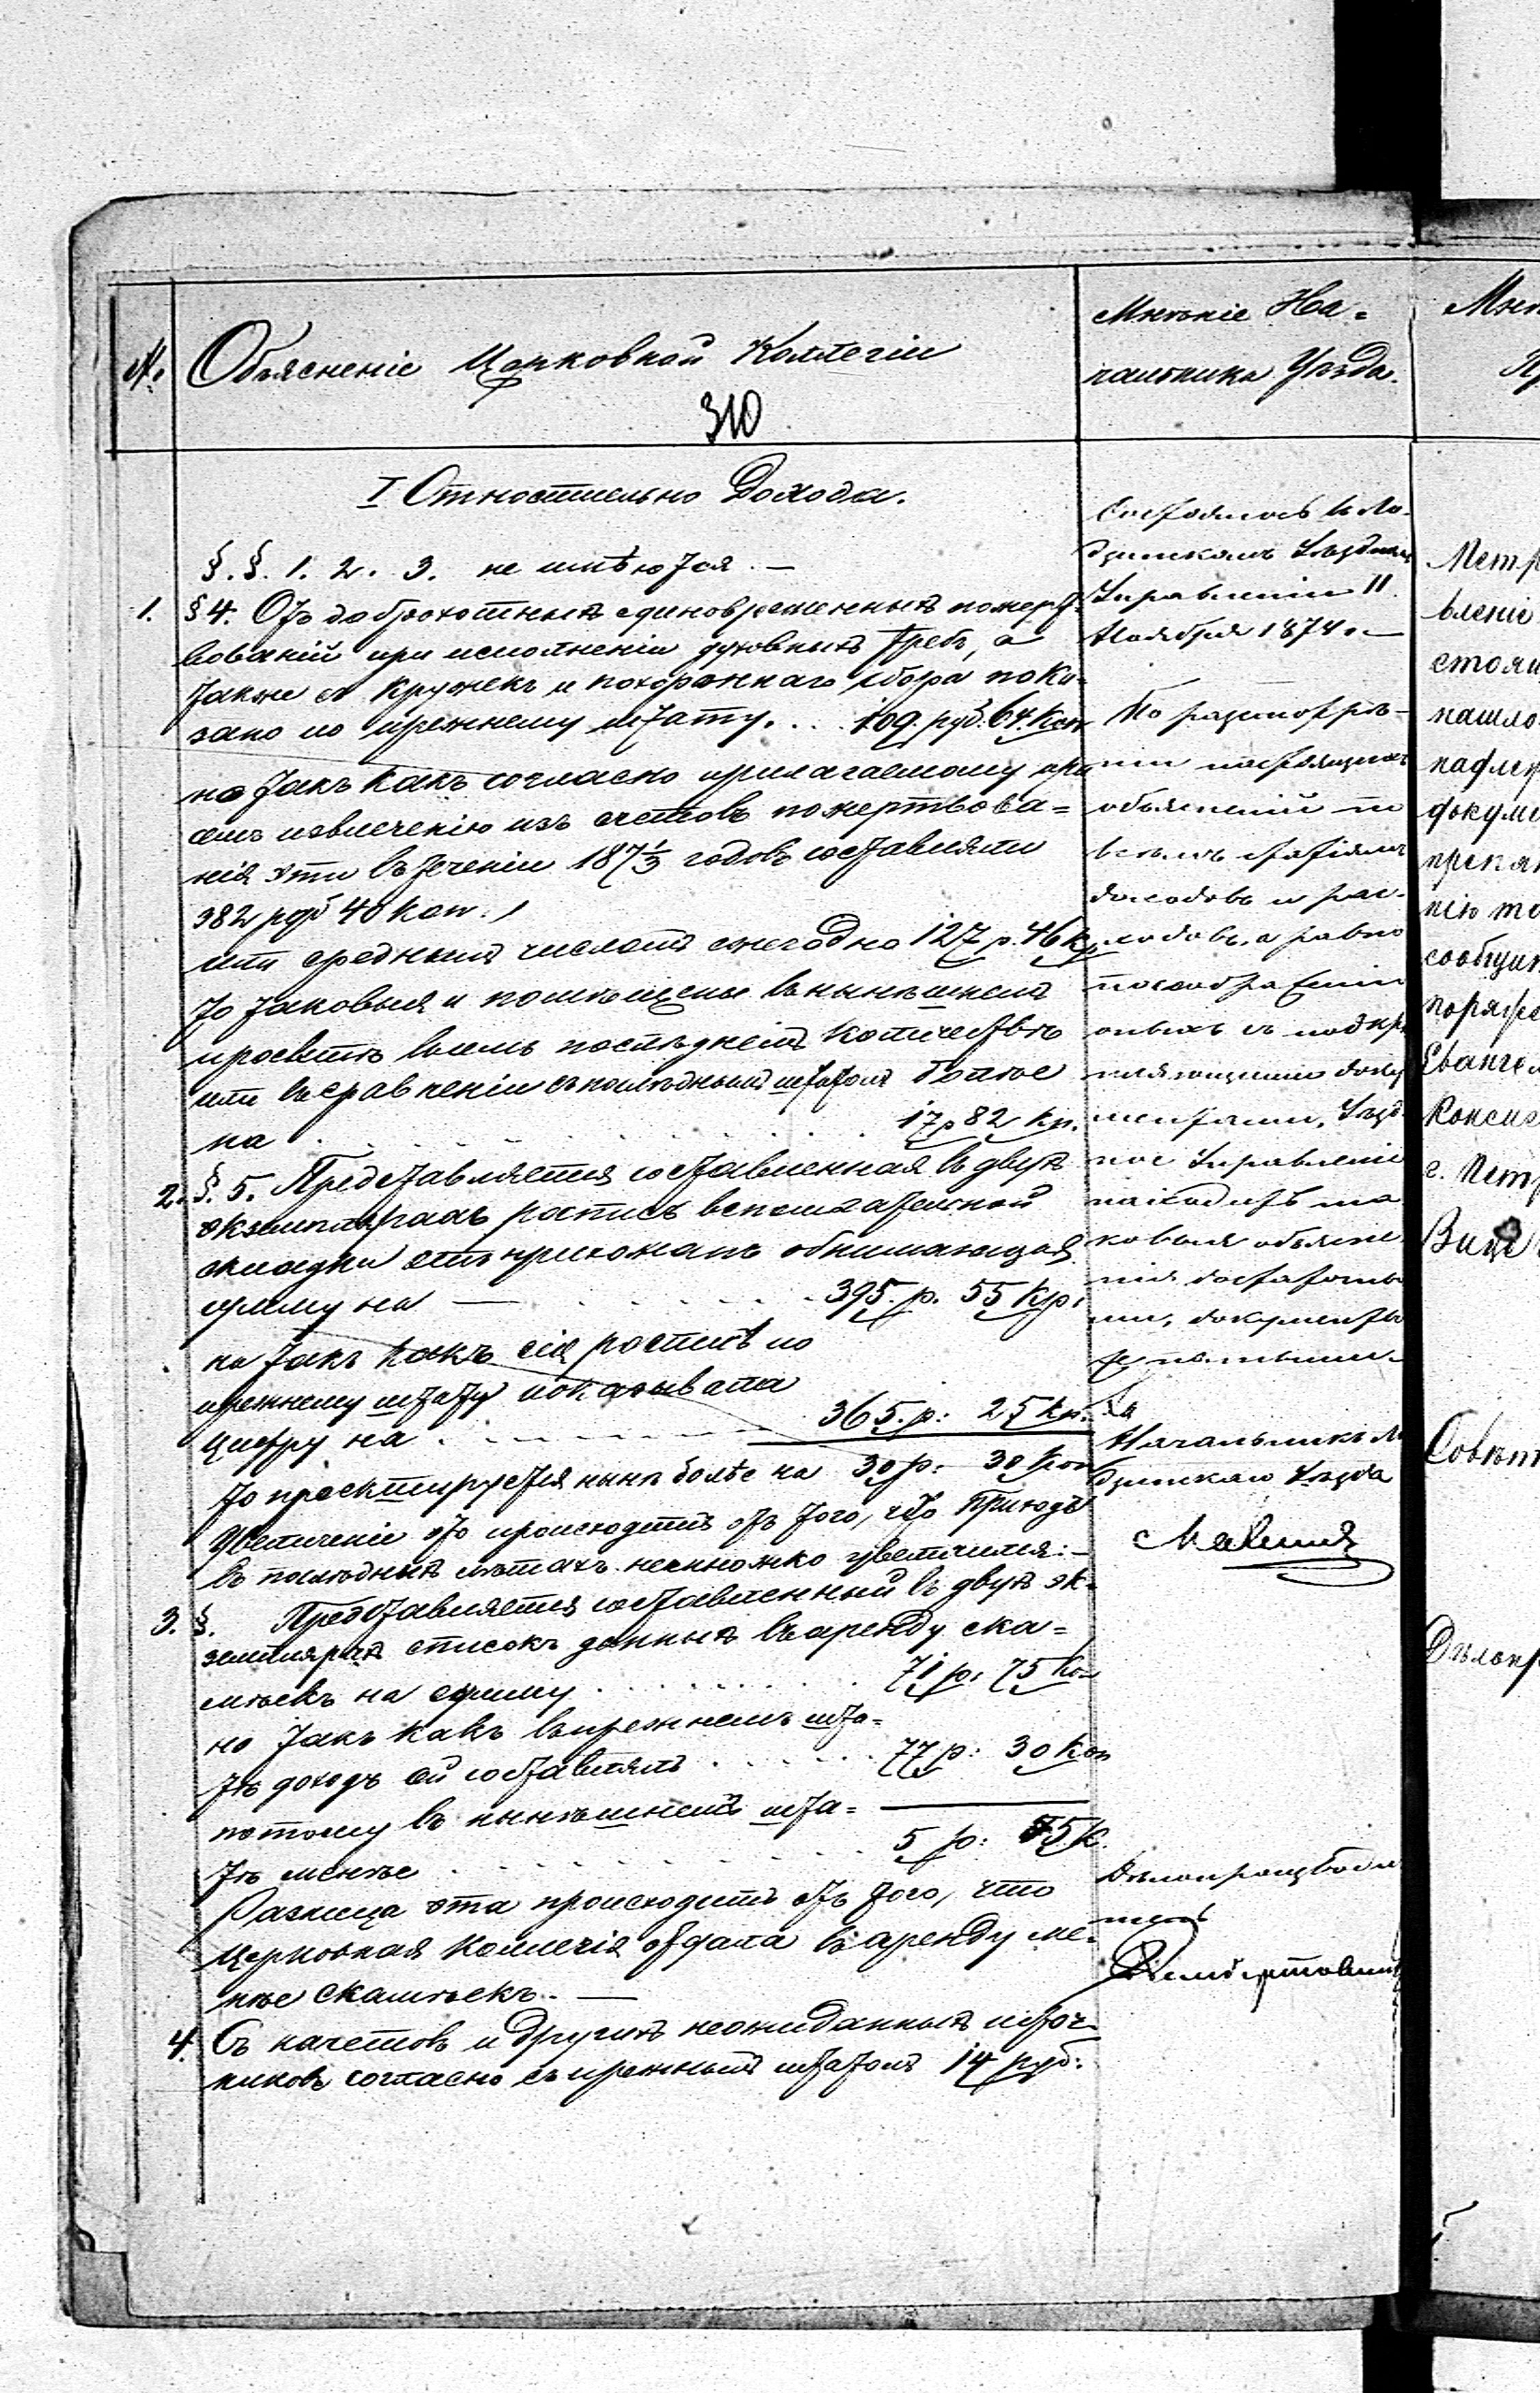 №.
Объясненіе Церковной Коллегіи
310
I Относительно Дохода.
§.§. 1. 2. 3. не имѣются. —
1. §4. Отъ доброхотныхъ единовременныхъ пожерт-
вованій при исполненіи духовныхъ требъ, а
также съ кружекъ и похороннаго сбора пока-
зано по прежнему штату. . . 109. руб. 64. Коп
но такъ какъ согласно прилагаемому при
семъ извлеченію изъ счетовъ пожертвова=
нія эти въ теченіи 187 1/3 годовъ составляли
382 руб 40 коп.
или среднимъ числомъ ежегодно 127 р. 46 к
то таковыя и помѣщены въ нынѣшнемъ
просвитъ въ семъ послѣднемъ количествѣ
или въ сравненіи съ послѣднимъ штатомъ болѣе
на . . . . . . . . 17 р 82 кп.
2. §. 5. Представляется составленная въ двухъ
экземплярахъ роспись вспомагательной
складки отъ прихожанъ обнимающая
сумму на — . . . . . . 395. р. 55 Кр.
но такъ какъ сія роспись по
прежнему штату показывала
цифру на . . . . . . 365. р: 25 кп.
то проектируется нынѣ болѣе на 30 р: 30 коп
Увеличеніе это происходитъ отъ того, что Приходъ
въ послѣднихъ лѣтахъ немножко увеличился: —
3. §. Представляется составленный въ двухъ эк-
земплярахъ списокъ данныхъ въ аренду ска=
меекъ на сумму . . . . . . . 71 р: 75 Ко
но такъ какъ въ прежнемъ шта=
тѣ доходъ сей составлялъ . . . . . 77 р: 30 Коп
потому въ нынѣшнемъ шта=
тѣ менѣе . . . . . . . . 5 р: 55 К.
Разница эта происходитъ отъ того, что
Церковная Коллегія отдала въ аренду ме-
нѣе скамеекъ. —
4. Съ начетовъ и другихъ неожиданныхъ источ-
никовъ согласно съ прежнимъ штатомъ 14 руб:
Мнѣніе На=
чальника Уѣзда.
Состоялось въ Ло-
дзинскомъ Уѣздномъ
Управленіи 11.
Ноября 1874. —
По разсмотрѣ-
ніи настоящихъ
объясненій по
всѣмъ статіямъ
доходовъ и рас-
ходовъ, а равно
по соображеніи
оныхъ съ подкрѣ
пляющими доку
ментами, Уѣзд-
ное Управленіе
находитъ та
ковыя объясне
нія достаточны
ми, документы
Начальникъ Ло
дзинскаго Уѣзда
Дѣлопроизводи
тель
Мнѣ
Пр
Петр
вленіе
стоящ
нашло
надлеж
докуме
препят
нію то
сообщит
порядк
Еванге
Консис
г. Петр
Вице
Совѣт
Дѣлопр